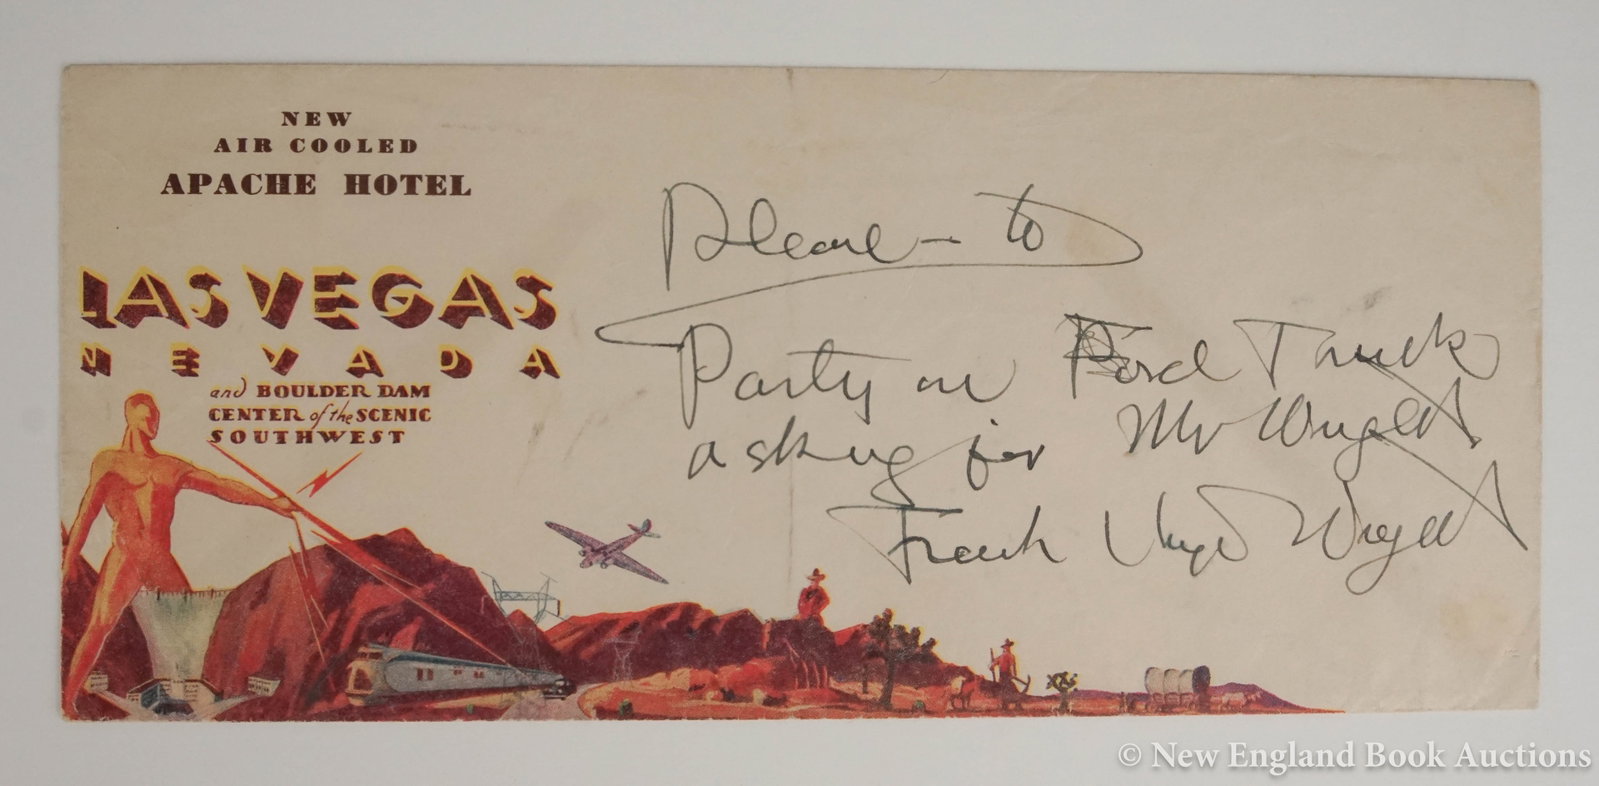 NEW
AIR COOLED
APACHE HOTEL
LAS VEGAS
NEVADA
and BOULDER DAM
CENTER of the SCENIC
SOUTHWEST
Please – to
Party in Ford Truck
asking for Mr Wright
Frank Lloyd Wright
© New England Book Auctions